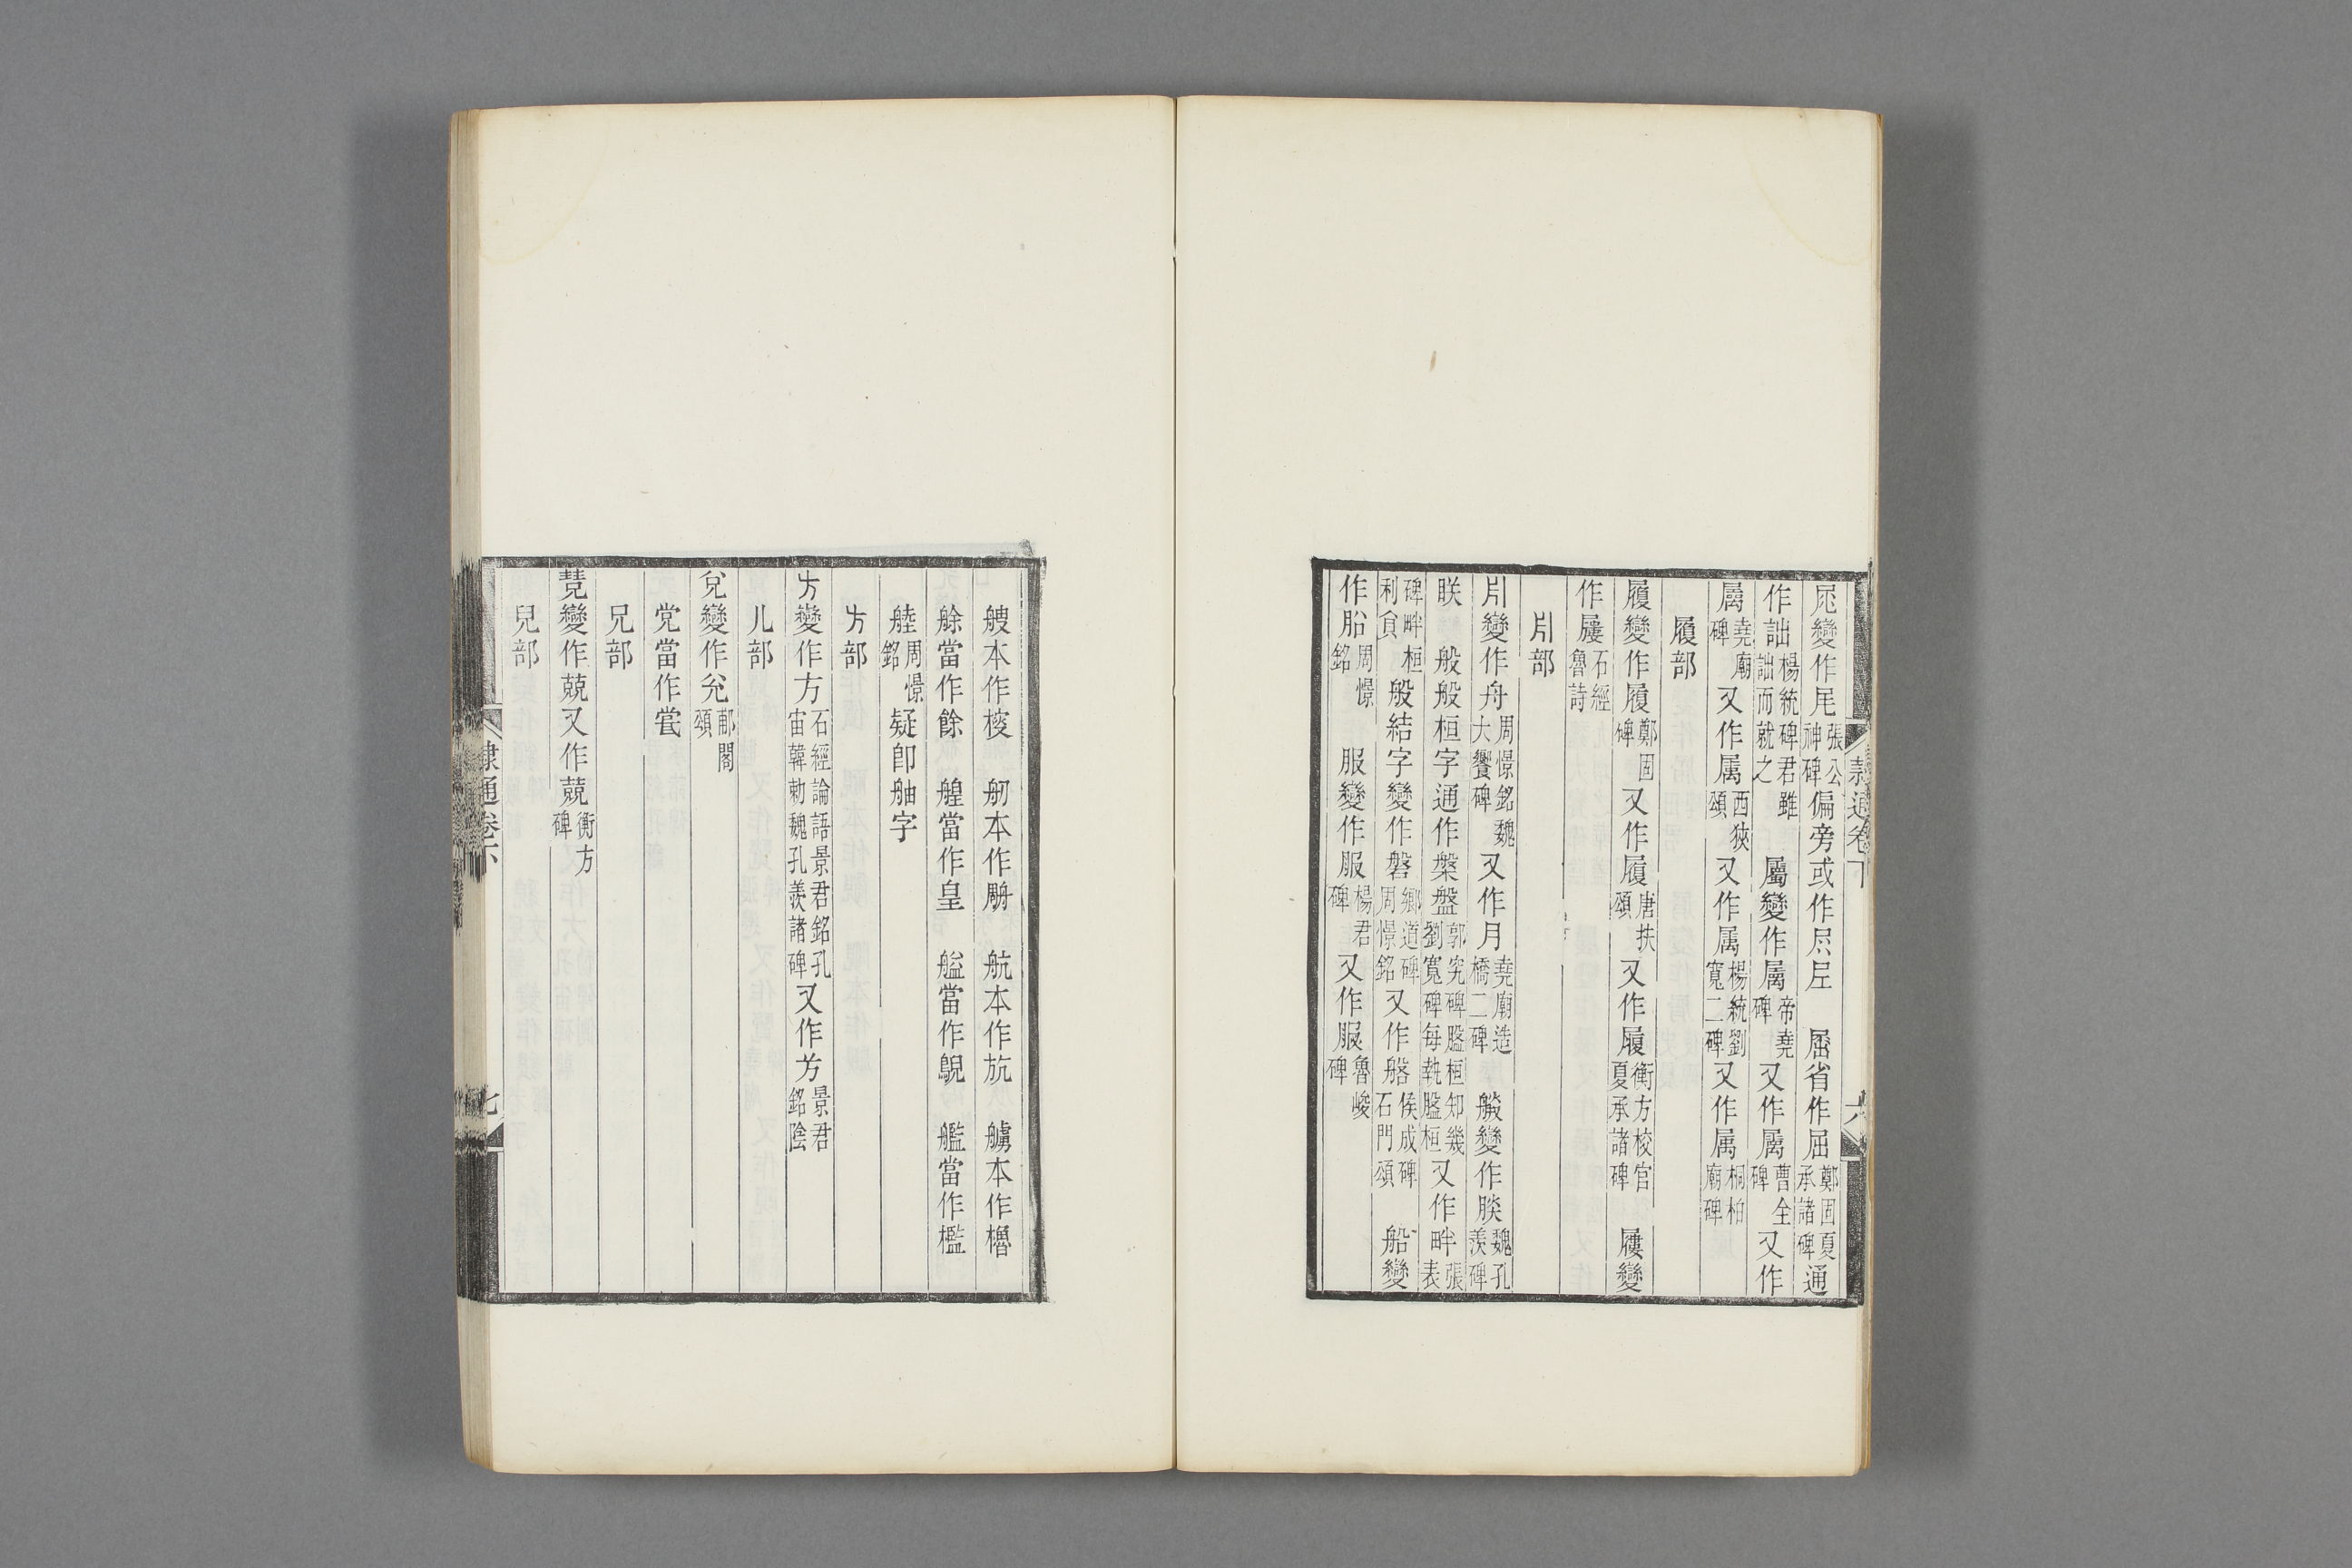 隷通卷下
六
屍變作尾張公神碑偏旁或作𡰯𡰱 屈省作屈鄭固夏承諸碑通
作詘楊統碑君雖詘而就之 屬變作属帝堯碑又作屬曹全碑又作
属堯廟碑又作属西狹頌又作属楊統劉寬二碑又作属桐柏廟碑
履部
履變作履鄭固碑又作履唐扶頌又作履衡方校官夏承諸碑 屨變
作屨石經魯詩
舟部
舟變作舟周憬銘魏大饗碑又作月堯廟造橋二碑 艅變作朕魏孔羨碑
朕 般般桓字通作槃盤郭究碑盤桓劉寬碑每執盤桓知幾又作畔張表
碑畔桓利貞般結字變作磐鄉道碑周憬銘又作䑪侯成碑石門頌 船變
作船周憬銘 服變作服楊君碑又作服魯峻碑
艘本作㮴 舠本作䑠 航本作䒫 艣本作櫓
艅當作餘 艎當作皇 艗當作鶂 艦當作檻
䑽周憬銘疑卽舳字
方部
方變作方石經論語景君銘孔宙韓勑魏孔羨諸碑又作㫄景君銘陰
儿部
兌變作兊郙閣頌
党當作嘗
兄部
兢變作兢又作兢衡方碑
皃部
隷通卷下
七